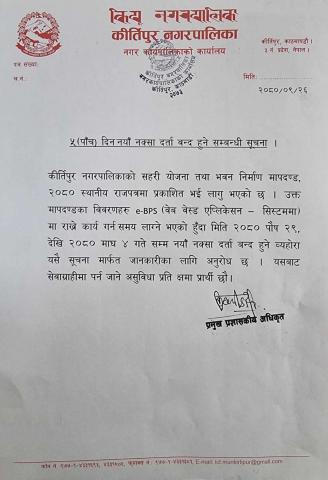 कीर्तिपुर नगरपालिका
नगर कार्यपालिकाको कार्यालय
कीर्तिपुर, काठमाडौं
३ नं. प्रदेश, नेपाल ।
पत्र संख्या:
च.नं.
मिति:
२०८०/०९/२६
५(पाँच) दिन नयाँ नक्सा दर्ता बन्द हुने सम्बन्धी सूचना ।
कीर्तिपुर नगरपालिकाको सहरी योजना तथा भवन निर्माण मापदण्ड,
२०८० स्थानीय राजपत्रमा प्रकाशित भई लागु भएको छ । उक्त
मापदण्डका विवरणहरु e-BPS (वेब वेस्ड एप्लिकेसन – सिस्टममा)
मा राख्ने कार्य गर्न समय लाग्ने भएको हुँदा मिति २०८० पौष २९,
देखि २०८० माघ ४ गते सम्म नयाँ नक्सा दर्ता बन्द हुने व्यहोरा
यसै सूचना मार्फत जानकारीका लागि अनुरोध छ । यसबाट
सेवाग्राहीमा पर्न जाने असुविधा प्रति क्षमा प्रार्थी छौं।
प्रमुख प्रशासकीय अधिकृत